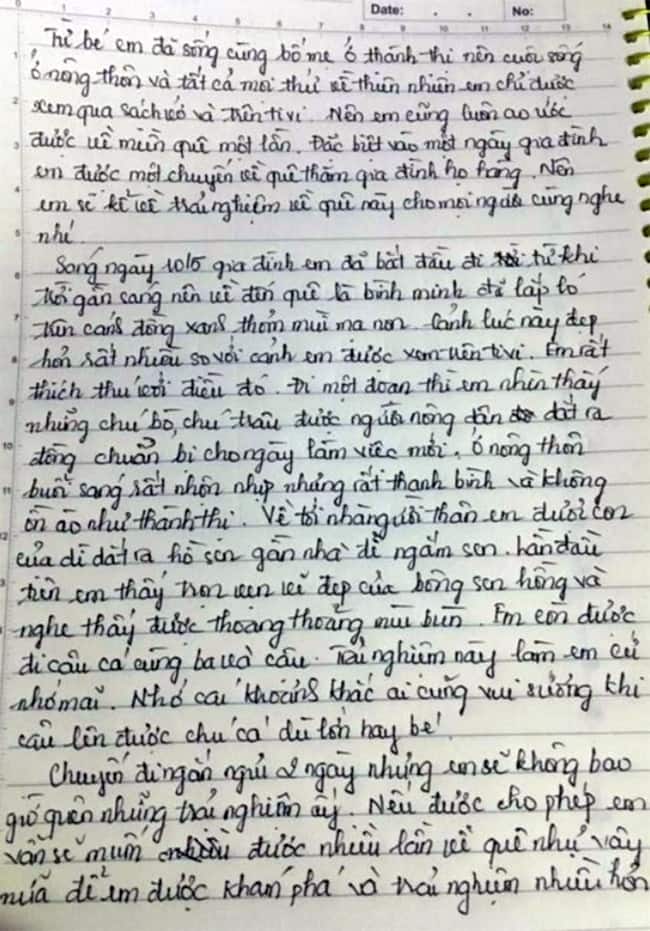 Date: No:
Từ bé em đã sống cùng bố mẹ ở thành thị nên cuộc sống
ở nông thôn và tất cả mọi thứ về thiên nhiên em chỉ được
xem qua sách vở và trên tivi. Nên em cũng luôn ao ước
được về miền quê một lần. Đặc biệt vào một ngày gia đình
em được một chuyến về quê thăm gia đình họ hàng. Nên
em sẽ kể về trải nghiệm về quê này cho mọi người cùng nghe
nhé.
Sáng ngày 10/5 gia đình em đã bắt đầu đi từ khi
trời gần sang nên về đến quê là bình minh đã lấp ló
trên cánh đồng xanh thơm mùi mạ non. Cảnh lúc này đẹp
hơn rất nhiều so với cảnh em được xem trên tivi. Em rất
thích thú với điều đó. Đi một đoạn thì em nhìn thấy
những chú bò, chú trâu được người nông dân dắt ra
đồng chuẩn bị cho ngày làm việc mới. Ở nông thôn
buổi sáng rất nhộn nhịp nhưng rất thanh bình và không
ồn ào như thành thị. Về tới nhà người thân em được con
của dì dắt ra hồ sen gần nhà để ngắm sen. Lần đầu
tiên em thấy trọn vẹn vẻ đẹp của bông sen hồng và
nghe thấy được thoang thoảng mùi bùn. Em còn được
đi câu cá cùng ba và cậu. Trải nghiệm này làm em cứ
nhớ mãi. Nhớ cái khoảnh khắc ai cũng vui sướng khi
câu lên được chú cá dù lớn hay bé!
Chuyến đi ngắn ngủi 2 ngày nhưng em sẽ không bao
giờ quên những trải nghiệm ấy. Nếu được cho phép em
vẫn sẽ muốn được nhiều lần về quê như vậy
nữa để em được khám phá và trải nghiệm nhiều hơn